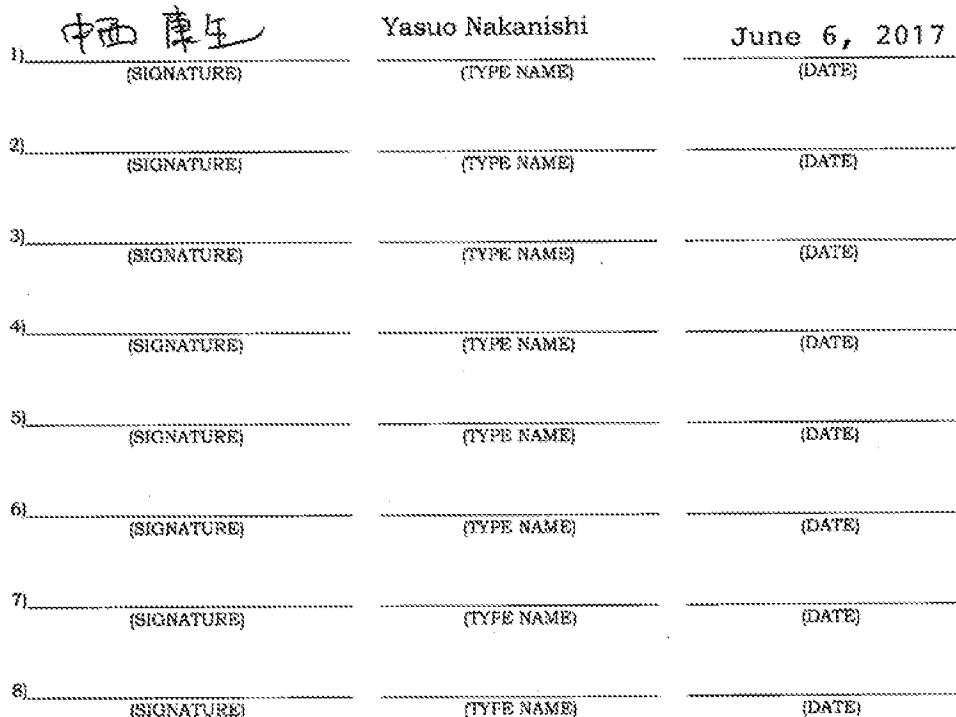 1) 中西 康生 Yasuo Nakanishi June 6, 2017
(SIGNATURE) (TYPE NAME) (DATE)
2)
(SIGNATURE) (TYPE NAME) (DATE)
3)
(SIGNATURE) (TYPE NAME) (DATE)
4)
(SIGNATURE) (TYPE NAME) (DATE)
5)
(SIGNATURE) (TYPE NAME) (DATE)
6)
(SIGNATURE) (TYPE NAME) (DATE)
7)
(SIGNATURE) (TYPE NAME) (DATE)
8)
(SIGNATURE) (TYPE NAME) (DATE)